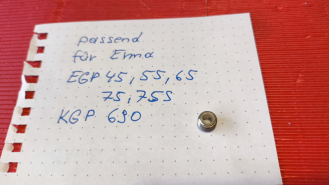 passend
für Erma
EGP 45, 55, 65
75, 75S
KGP 690